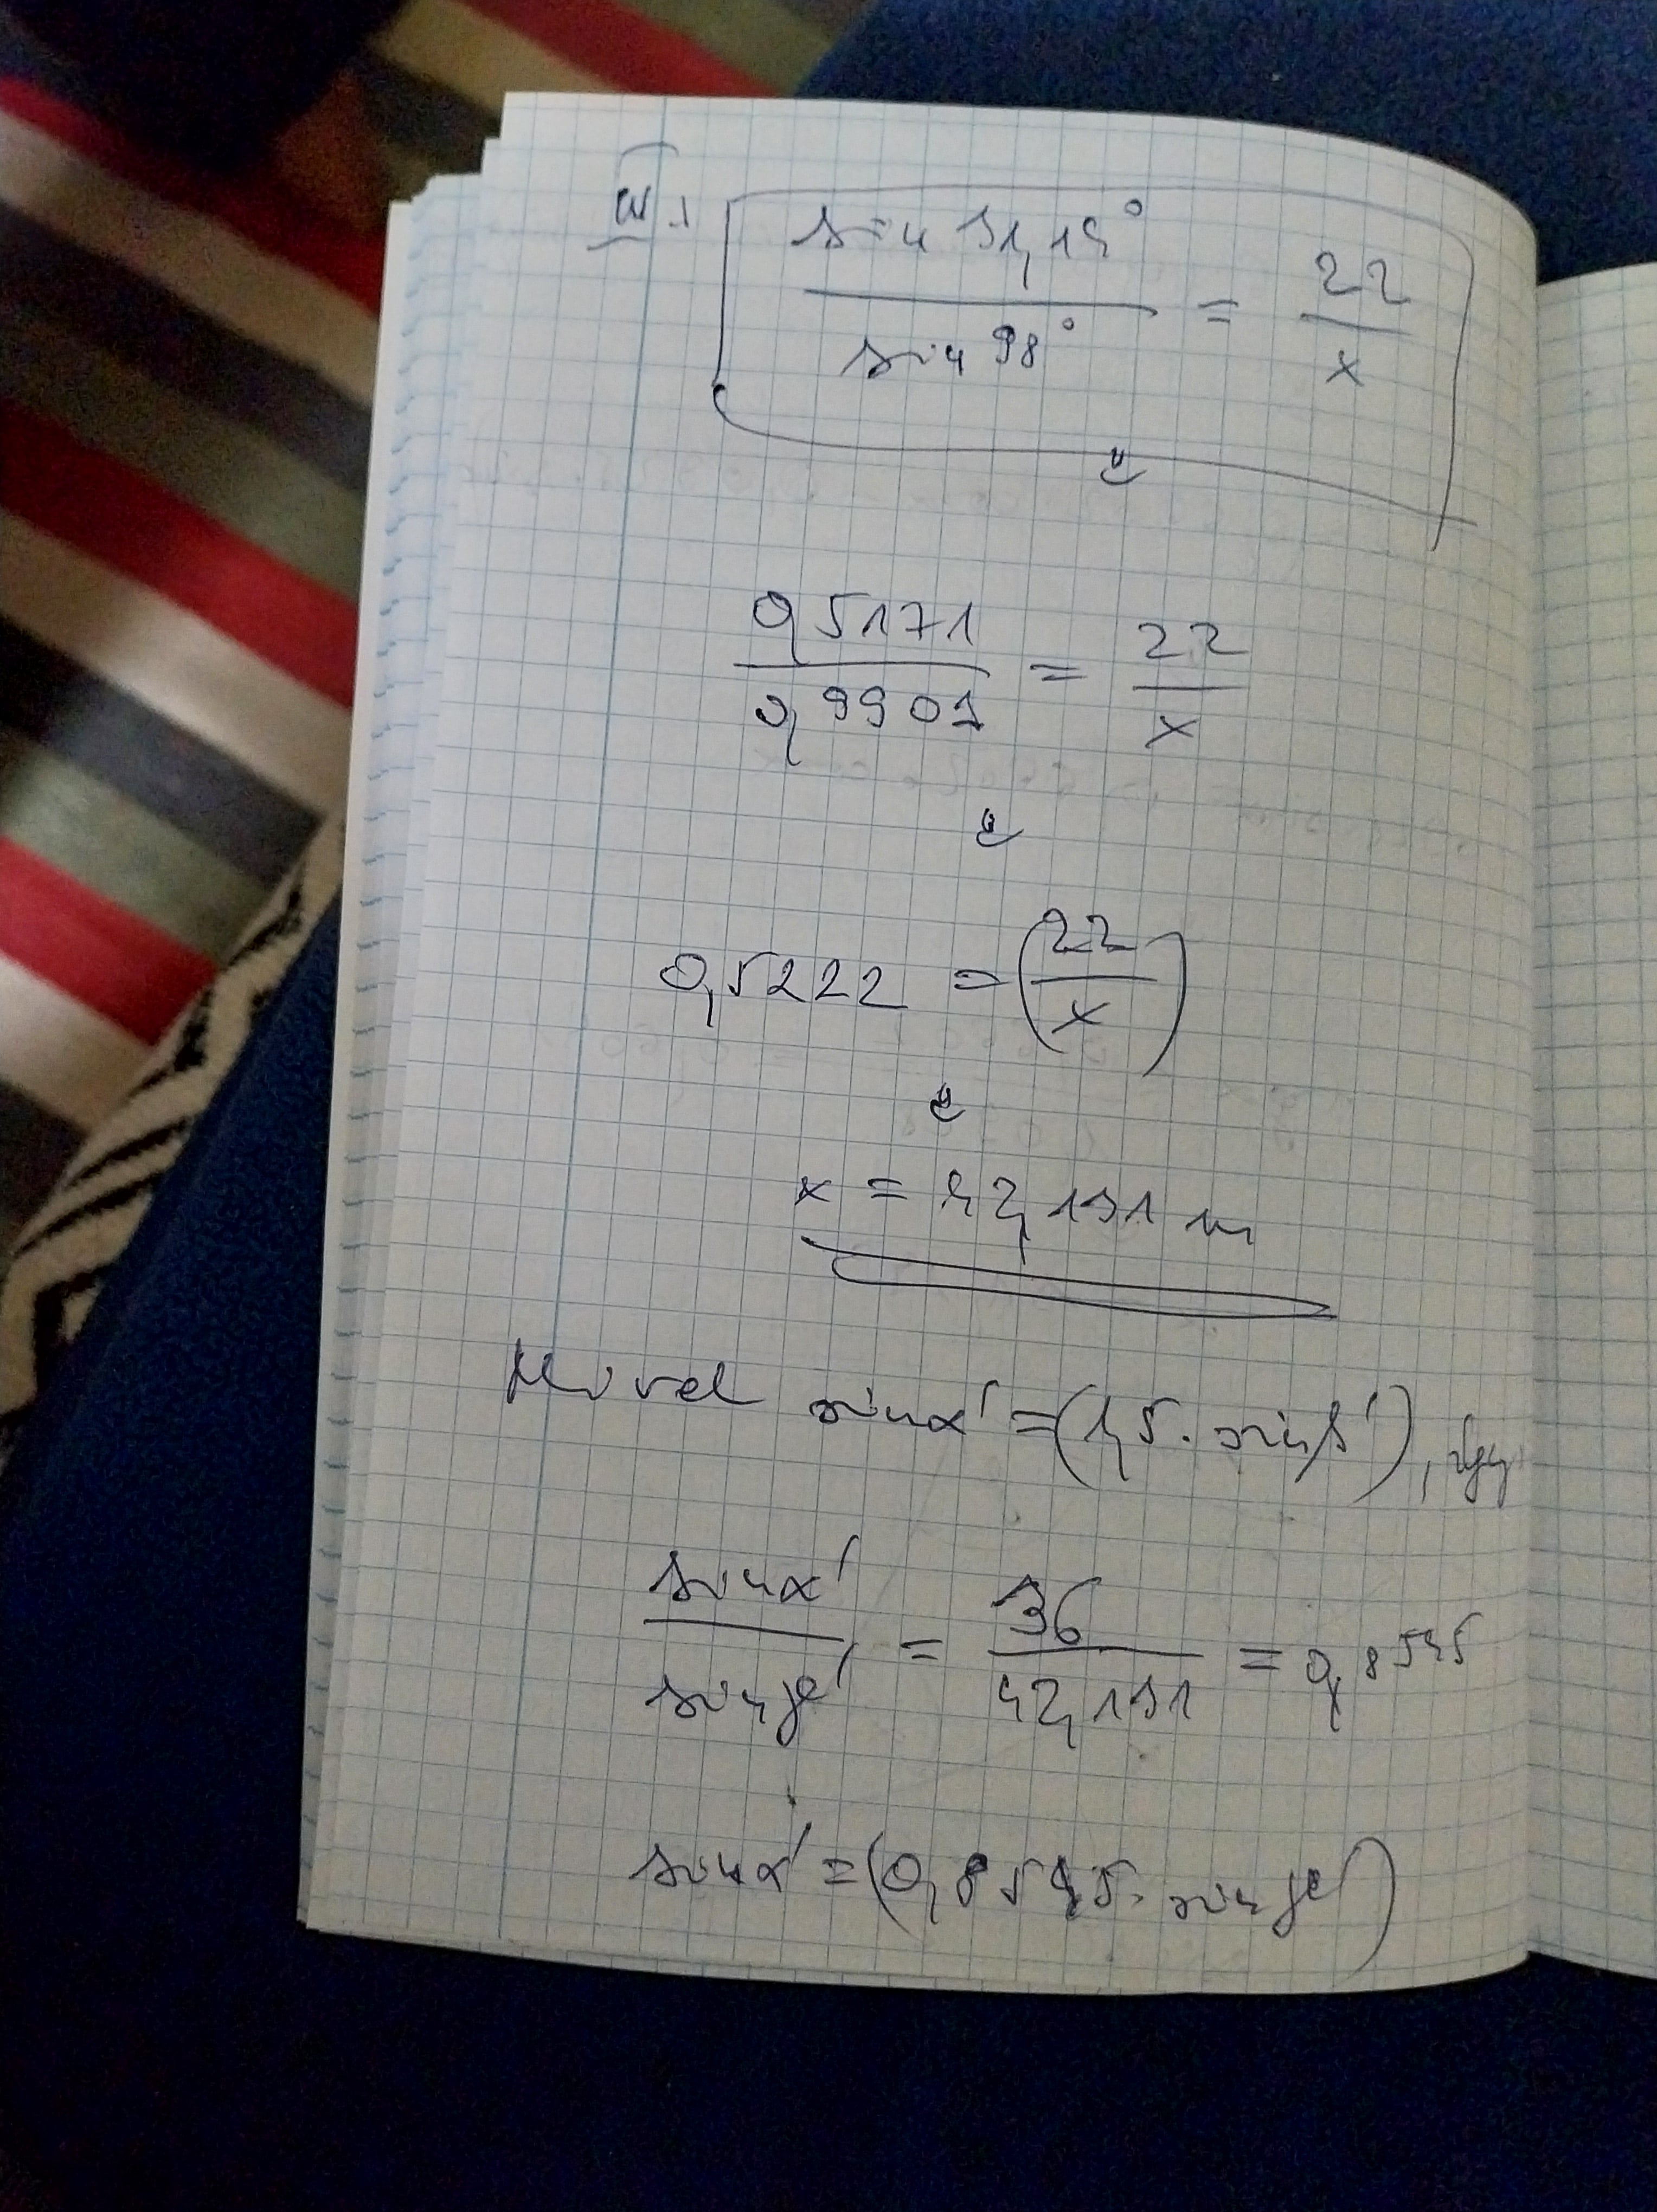 sin 31,14° / sin 98° = 22 / x
0,5171 / 0,9901 = 22 / x
0,5222 = (22 / x)
x = 42,131 m
Mivel sinα' = (1,5 · sinβ'), így
sinα' / sinγ' = 36 / 42,131 = 0,8545
sinα' = (0,8545 · sinγ')